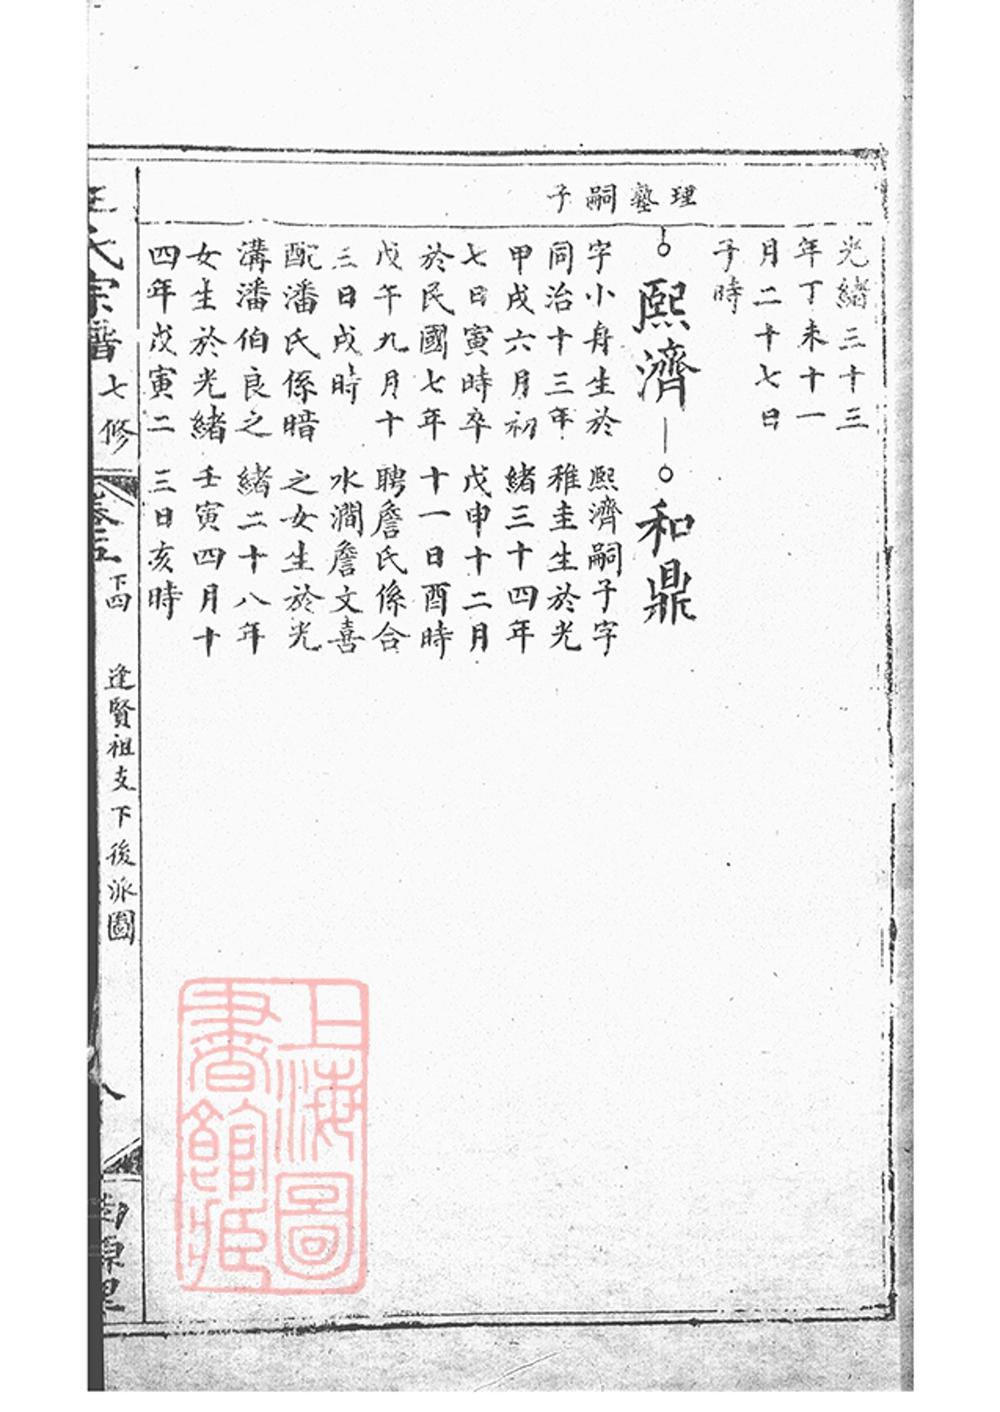 理藝嗣子
光緒三十三
年丁未十一
月二十七日
子時
熙濟
和鼎
字小身生於
同治十三年
甲戌六月初
七日寅時卒
於民國七年
戊午九月十
三日戌時
配潘氏係暗
溝潘伯良之
女生於光緒
四年戊寅二
熙濟嗣子字
稚圭生於光
緒三十四年
戊申十二月
十一日酉時
聘詹氏係合
水澗詹文喜
之女生於光
緒二十八年
壬寅四月十
三日亥時
氏宗譜七修
下四
逢賢祖支下後派圖
八
上海圖
書館藏